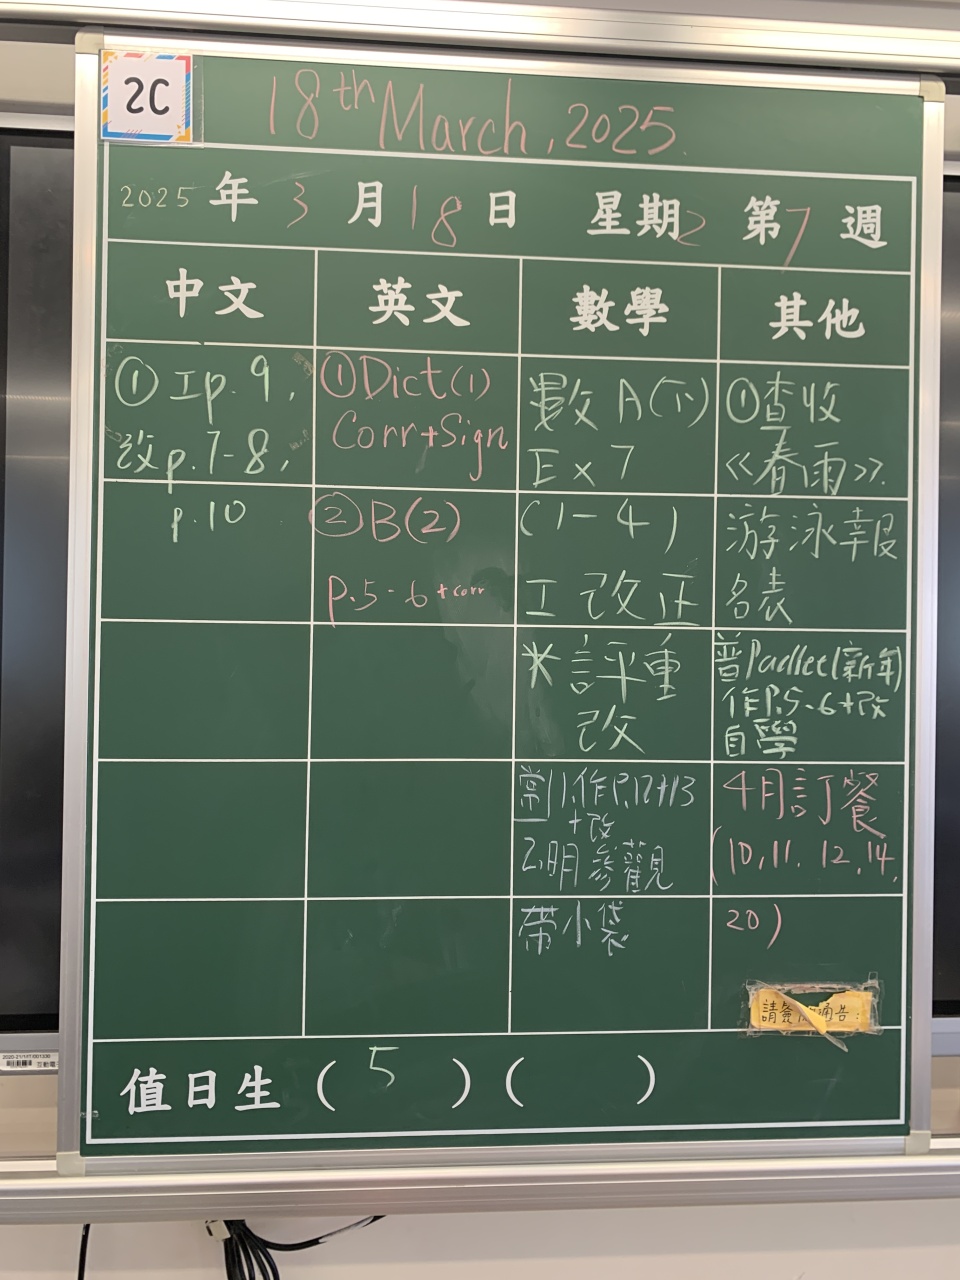 2C
18th March, 2025.
2025 年 3 月 18 日 星期2 第7週
中文
① 工p. 9,
改p.7-8,
p.10
英文
①Dict(1)
Corr+Sign
②B(2)
p.5-6 +corr
數學
數 A(下)
Ex 7
(1-4)
工 改正
*評重
改
常 1.作P.12+13
+改
2.明參觀
帶小袋
其他
①查收
《春雨》.
游泳報
名表
普Padlet(新年)
作P.5-6+改
自學
4月訂餐
(10,11.12,14,
20)
請簽 通告:
值日生 ( 5 ) ( )